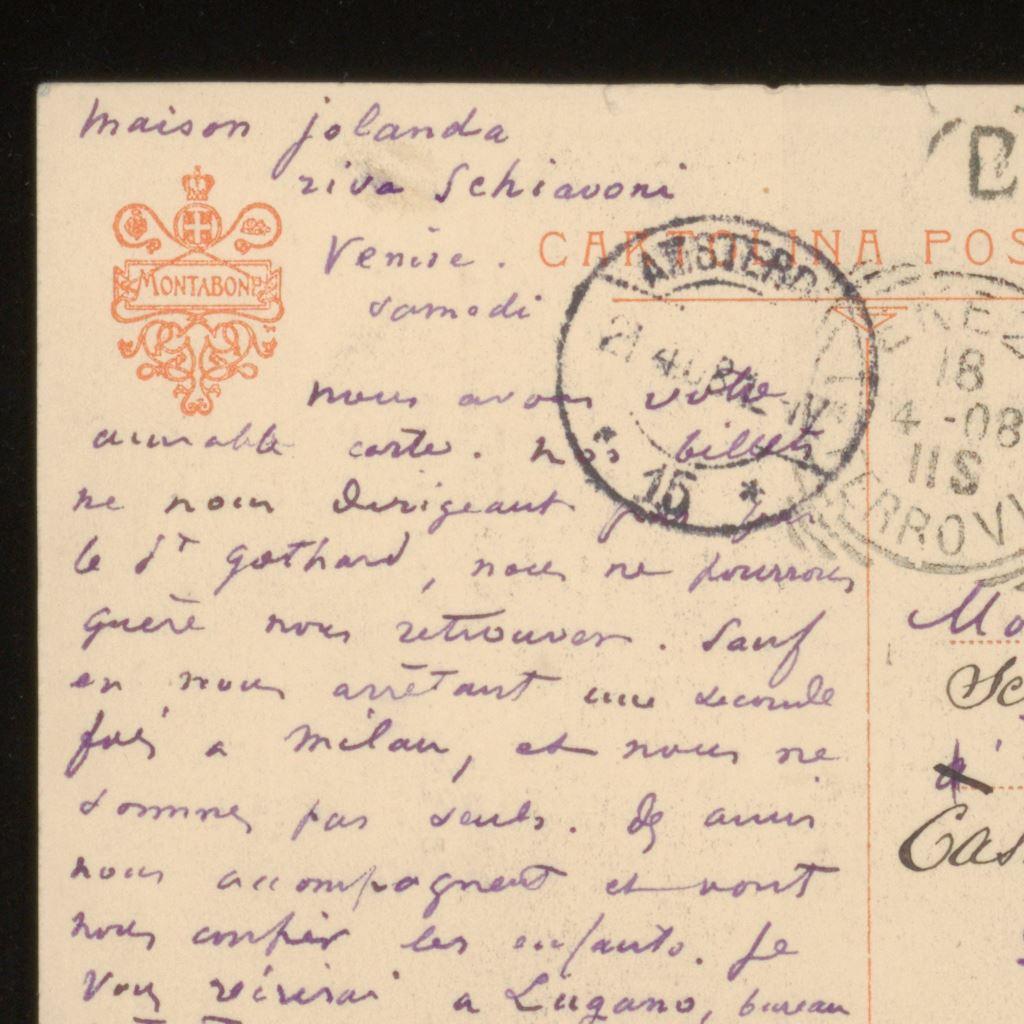 maison jolanda
riva Schiavoni
Venise.
samedi
MONTABONE
CARTOLINA POS
AMSTERD
21 4 08
15 *
VENEZ
18
4 -08
11S
FERROVI
nous avons votre
aimable carte. nos billets
ne nous dirigeant pas par
le St Gothard, nous ne pourrons
guère nous retrouver. Sauf
en nous arrêtant une seconde
fois a milan, et nous ne
sommes pas seuls. Des amis
nous accompagnent et vont
nous confier les enfants. Je
vous récrirai a Lugano, bureau
Mo
Sc
a'
Cas